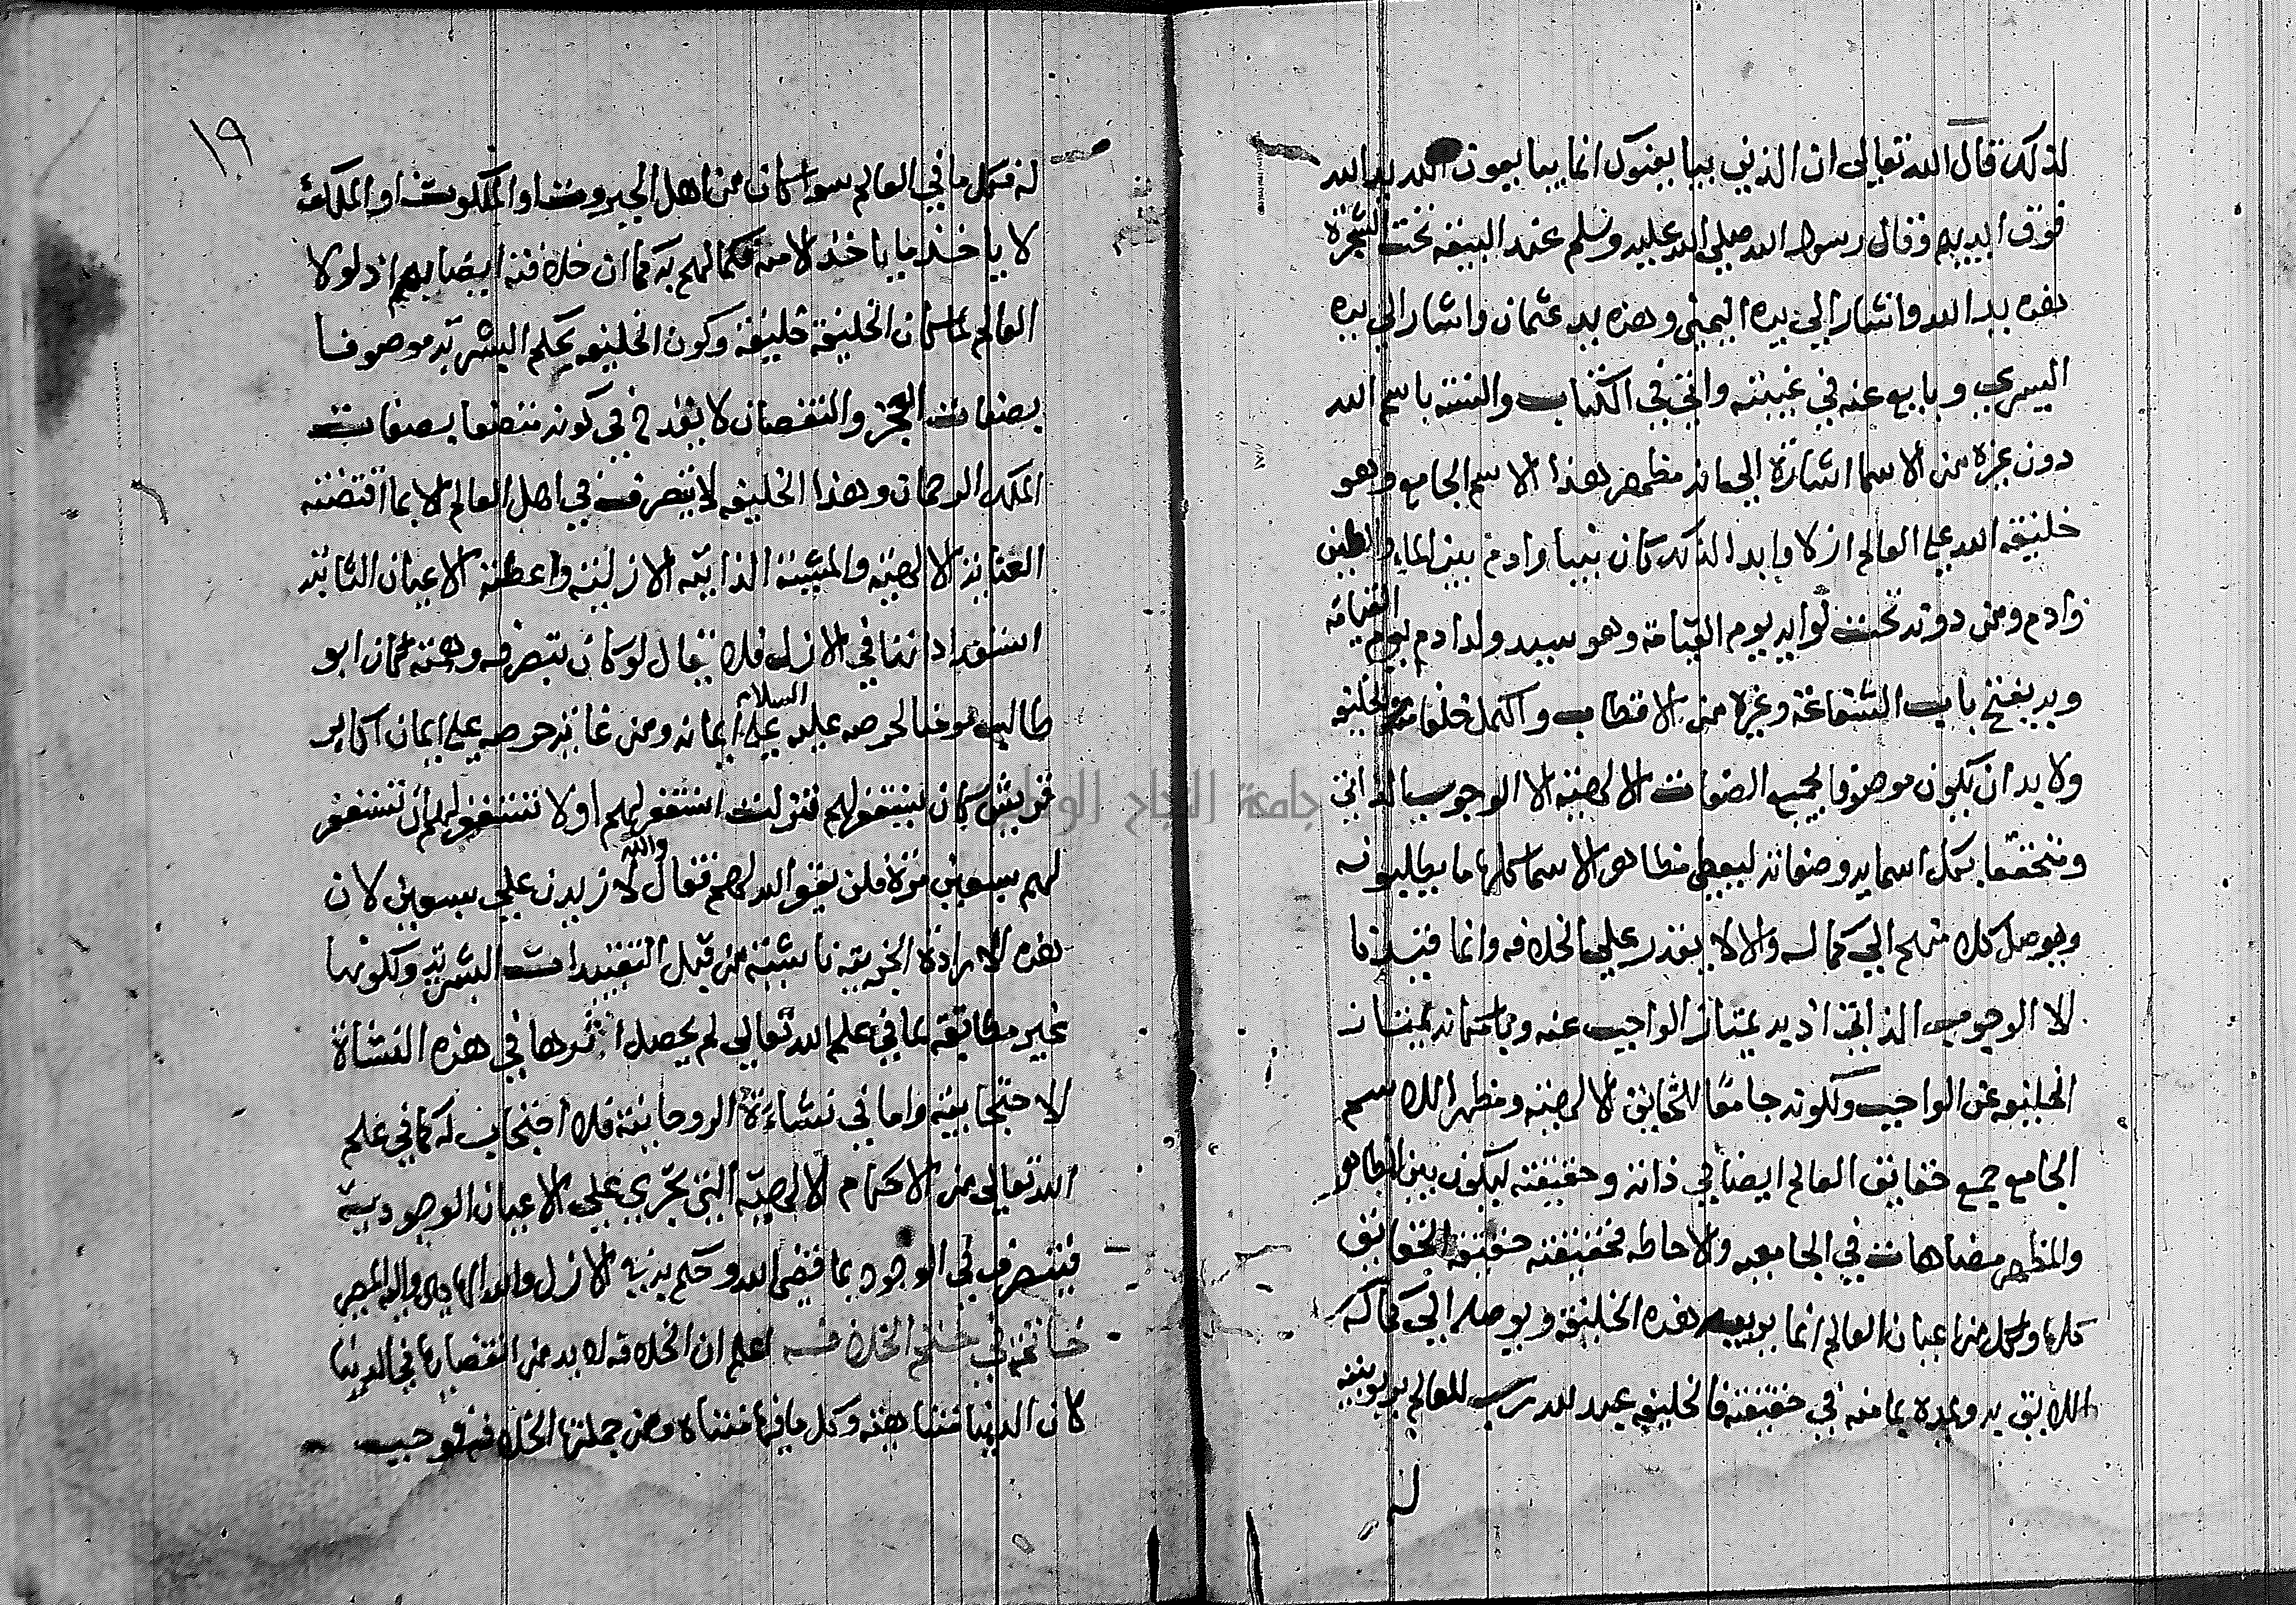 لذلك قال الله تعالى ان الذين يبايعونك انما يبايعون الله يد الله
فوق ايديهم وقال رسول الله صلى الله عليه وسلم عند البيعة تحت الشجرة
هذه يد الله واشار الي يده اليمني وهذه يد عثمان واشار الي يده
اليسري وبايع عنه في غيبته واتي في الكتاب والسنة باسم الله
دون غيره من الاسما اشارة الي انه مظهر هذا الاسم الجامع وهو
خليفة الله علي العالم ازلا وابدا لذلك كان نبيا وادم بين الماء والطين
وادم ومن دونه تحت لوايه يوم القيامة وهو سيد ولد ادم يوم القيامة
وبه يفتح باب الشفاعة وغيره من الاقطاب والكمل خلفا
ولا بد ان يكون موصوفا بجميع الصفات الالهية الا الوجوب الذاتي
ومتحققا بكل اسمايه وصفاته ليعطي مظاهر الاسما كلها ما يطلبونه
ويوصل كلا منهم الي كماله والا لا يقدر علي الخلافه وانما قيدنا
الا الوجوب الذاتي اذ به يمتاز الواجب عنه وبامكانه يمتاز
الخليفه عن الواجب ولكونه جامعا للحقايق الالهية ومظهرا للاسم
الجامع جمع حقايق العالم ايضا في ذاته وحقيقته ليكون بين الظاهر
والمظهر مضاهات في الجامعيه والاحاطه فحقيقته حقيقة الحقايق
كلها وكل من اعيان العالم انما يربيه هذه الخليفة ويوصله الي كماله
اللايق به وعبده بما منه في حقيقته فالخليفه عبد لله رب للعالم بربوبيته
له
١٩
له فكل ما في العالم سوا كان من اهل الجبروت او الملكوت او الملك
لا ياخذ ما ياخذ الا منه فكمالهم به كما ان خلافته ايضا بهم اذ لولا
العالم لما كان الخليفة خليفة وكون الخليفه بحكم البشرية موصوفا
بصفات العجز والنقصان لا يقدح في كونه متصفا بصفات
الملك الرحمان وهذا الخليفه لا يتصرف في اهل العالم الا بما اقتضته
العناية الالهية والمشيئة الذاتية الازلية واعطته الاعيان الثابتة
استعداداتها في الازل فلا يقال لو كان بتصرفه وهمته لكان ابو
طالب مومنا لحرصه عليه السلام علي ايمانه ومن غاية حرصه علي ايمان اكابر
قريش كان يستغفر لهم فنزلت استغفر لهم او لا تستغفر لهم ان تستغفر
لهم سبعين مرة فلن يغفر الله لهم فقال والله لازيدن علي سبعين لان
هذه الارادة الجزيية ناشئة من قبل التقييدات البشرية ولكونها
غير مطابقة لما في علم الله تعالي لم يحصل اثرها في هذه النشاة
الاحتجابية واما في نشاءة الروحانية فلا احتجاب له كما في علم
الله تعالي من الاحكام الالهية التي تجري علي الاعيان الوجودية
فيتصرف في الوجود بما قضي الله وحكم به في الازل والله الهادي واليه المصير
خاتمة في ختم الخلافة اعلم ان الخلافه لا بد من انقضايها في الدنيا
لان الدنيا متناهية وكل ما فيها متناه ومن جملتها الخلافه فوجب
جامعة النجاح الوطنية